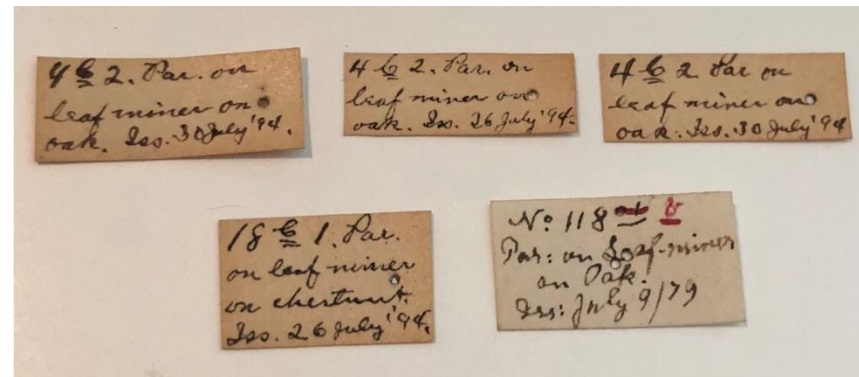 4 b 2. Par. on
leaf miner on
oak. Iss. 30 July '94.
4 b 2. Par. on
leaf miner on
oak. Iss. 26 July '94.
4 b 2 Par on
leaf miner on
oak. Iss. 30 July '94
18 b 1. Par.
on leaf miner
on chestnut.
Iss. 26 July '94.
No 118 b
Par: on Leaf-miner
on Oak.
Iss: July 9/79